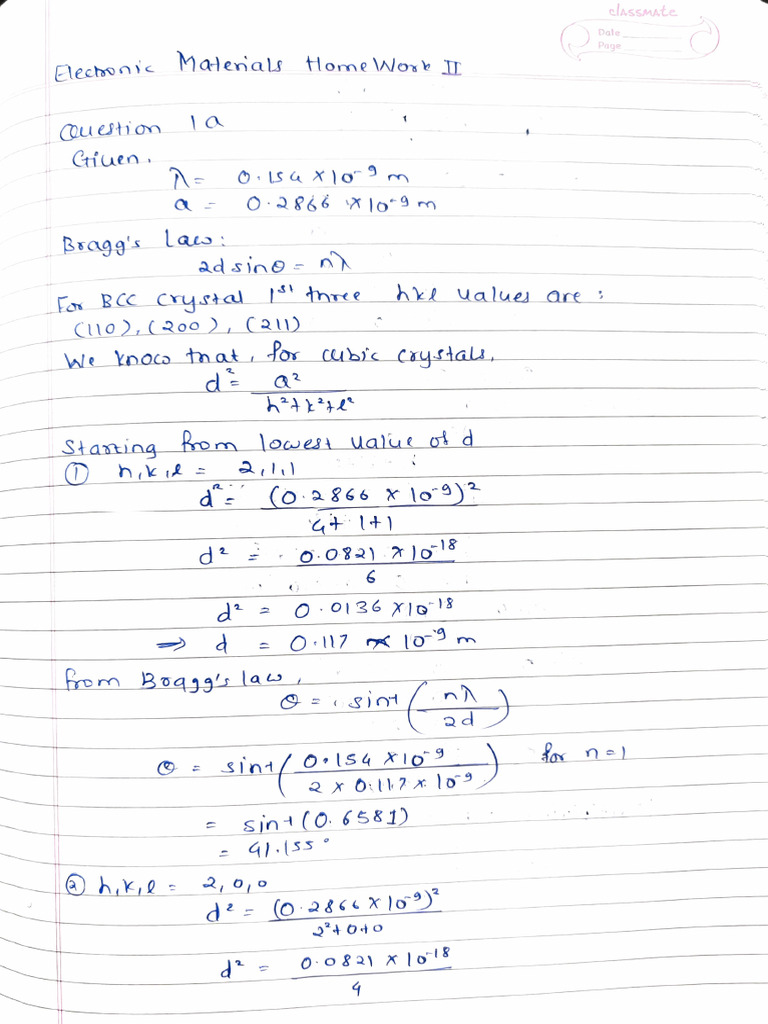 classmate
Date
Page
Electronic Materials HomeWork II
Question 1a
Given,
λ = 0.154 × 10⁻⁹ m
a = 0.2866 × 10⁻⁹ m
Bragg's law:
2d sinθ = nλ
For BCC crystal 1st three hkl values are:
(110), (200), (211)
We know that, for cubic crystals,
d² = a² / h²+k²+l²
Starting from lowest value of d
① h,k,l = 2,1,1
d² = (0.2866 × 10⁻⁹)² / 4+1+1
d² = 0.0821 × 10⁻¹⁸ / 6
d² = 0.0136 × 10⁻¹⁸
⇒ d = 0.117 × 10⁻⁹ m
from Bragg's law,
θ = sin⁻¹(nλ / 2d)
θ = sin⁻¹(0.154 × 10⁻⁹ / 2 × 0.117 × 10⁻⁹) for n=1
= sin⁻¹(0.6581)
= 41.155°
② h,k,l = 2,0,0
d² = (0.2866 × 10⁻⁹)² / 2²+0+0
d² = 0.0821 × 10⁻¹⁸ / 4